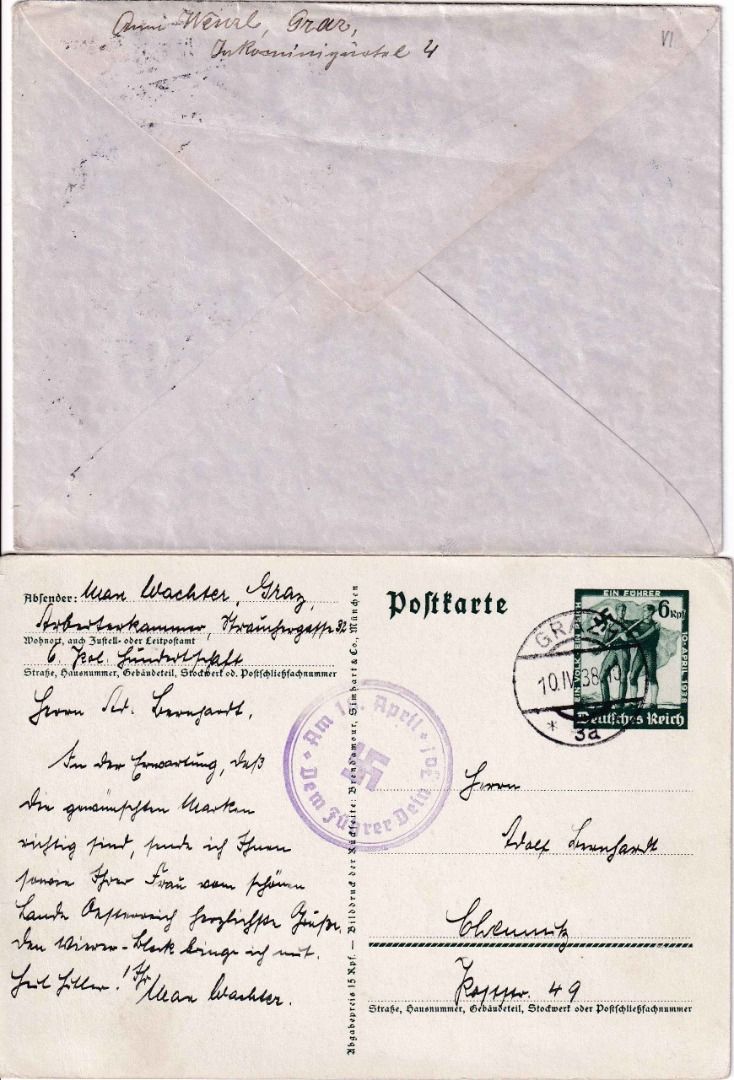 Anni Wenzl, Graz,
4
VI
Absender: Max Wachter, Graz,
Arbeiterkammer, Strauchergasse 32
Wohnort, auch Zustell- oder Leitpostamt
6. Pol. Hundertschaft
Straße, Hausnummer, Gebäudeteil, Stockwerk od. Postschließfachnummer
Herrn Ad. Bernhardt,
In der Erwartung, daß
die gewünschten Marken
richtig sind, sende ich Ihnen
sowie Ihrer Frau vom schönen
Lande Oesterreich herzlichste Grüße.
den Wiener-Block bringe ich mit.
Heil Hitler! Ihr
Max Wachter.
Am 10. April
Dem Führer Dein Ja!
Abgabepreis 15 Rpf. — Bilddruck der Rückseite: Brend'amour, Simhart & Co., München
Postkarte
EIN VOLK EIN REICH
EIN FÜHRER
10. APRIL 1938
6 Rpf
Deutsches Reich
GRAZ
10.IV.38
* 3a
Herrn
Adolf Bernhardt
Chemnitz
49
Straße, Hausnummer, Gebäudeteil, Stockwerk oder Postschließfachnummer